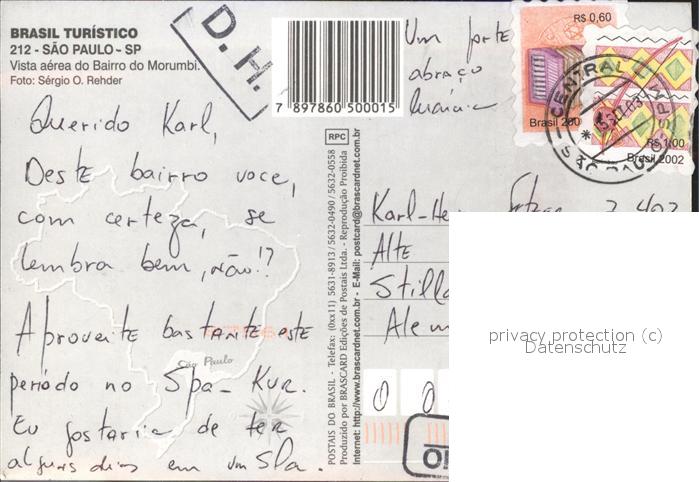 BRASIL TURÍSTICO
212 - SÃO PAULO - SP
Vista aérea do Bairro do Morumbi.
Foto: Sérgio O. Rehder
D. H.
7 897860 500015
Um forte
abraço
Querido Karl,
Deste bairro voce,
com certeza, se
lembra bem, não!?
Aproveite bastante este
período no Spa-Kur.
Eu gostaria de ter
alguns dias em um Spa.
São Paulo
RPC
POSTAIS DO BRASIL - Telefax: (0xx11) 5631-8913 / 5632-0490 / 5632-0558
Produzido por BRASCARD Edições de Postais Ltda. - Reprodução Proibida
Internet: http://www.brascardnet.com.br - E-Mail: postcard@brascardnet.com.br
R$ 0,60
Brasil 200
R$ 1,00
Brasil 2002
CENTRAL
SÃO PAULO-SP
Karl-He
Alte
Stilla
Alem
0 0
privacy protection (c)
Datenschutz